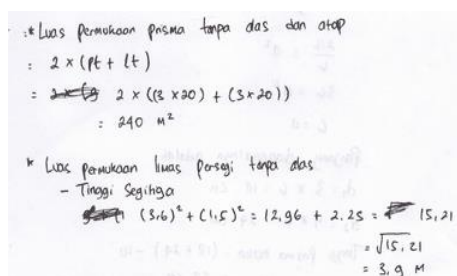 * Luas permukaan prisma tanpa alas dan atap
: 2 × (pt + lt)
= 2 × ((3 × 20) + (3 × 20))
: 240 M²
* Luas permukaan limas persegi tanpa das
- Tinggi segihga
(3,6)² + (1,5)² = 12,96 + 2.25 = 15,21
= √15,21
= 3,9 M